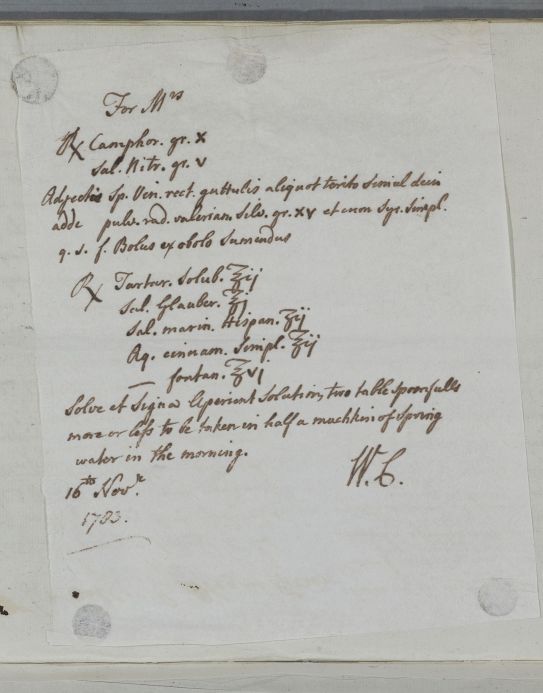 For Mrs
℞ Camphor. gr. x
Sal. Nitr. gr. v
Adjectis Sp. Vin. rect. guttulis aliquot terito simul dein
adde pulv. rad. valerian. Silv. gr. xv et cum Syr. Simpl.
q. s. f. Bolus ex obolo Sumendus
℞ Tartar. Solub. ℥ij
Sal. Glauber. ℥j
Sal. marin. Hispan. ʒij
Aq. cinnam. Simpl. ℥ij
— fontan. ℥vj
Solve et Signa Aperient Solution, two table spoonfulls
more or less to be taken in half a muchkin of Spring
water in the morning.
16th Novr.
W. C.
1783.